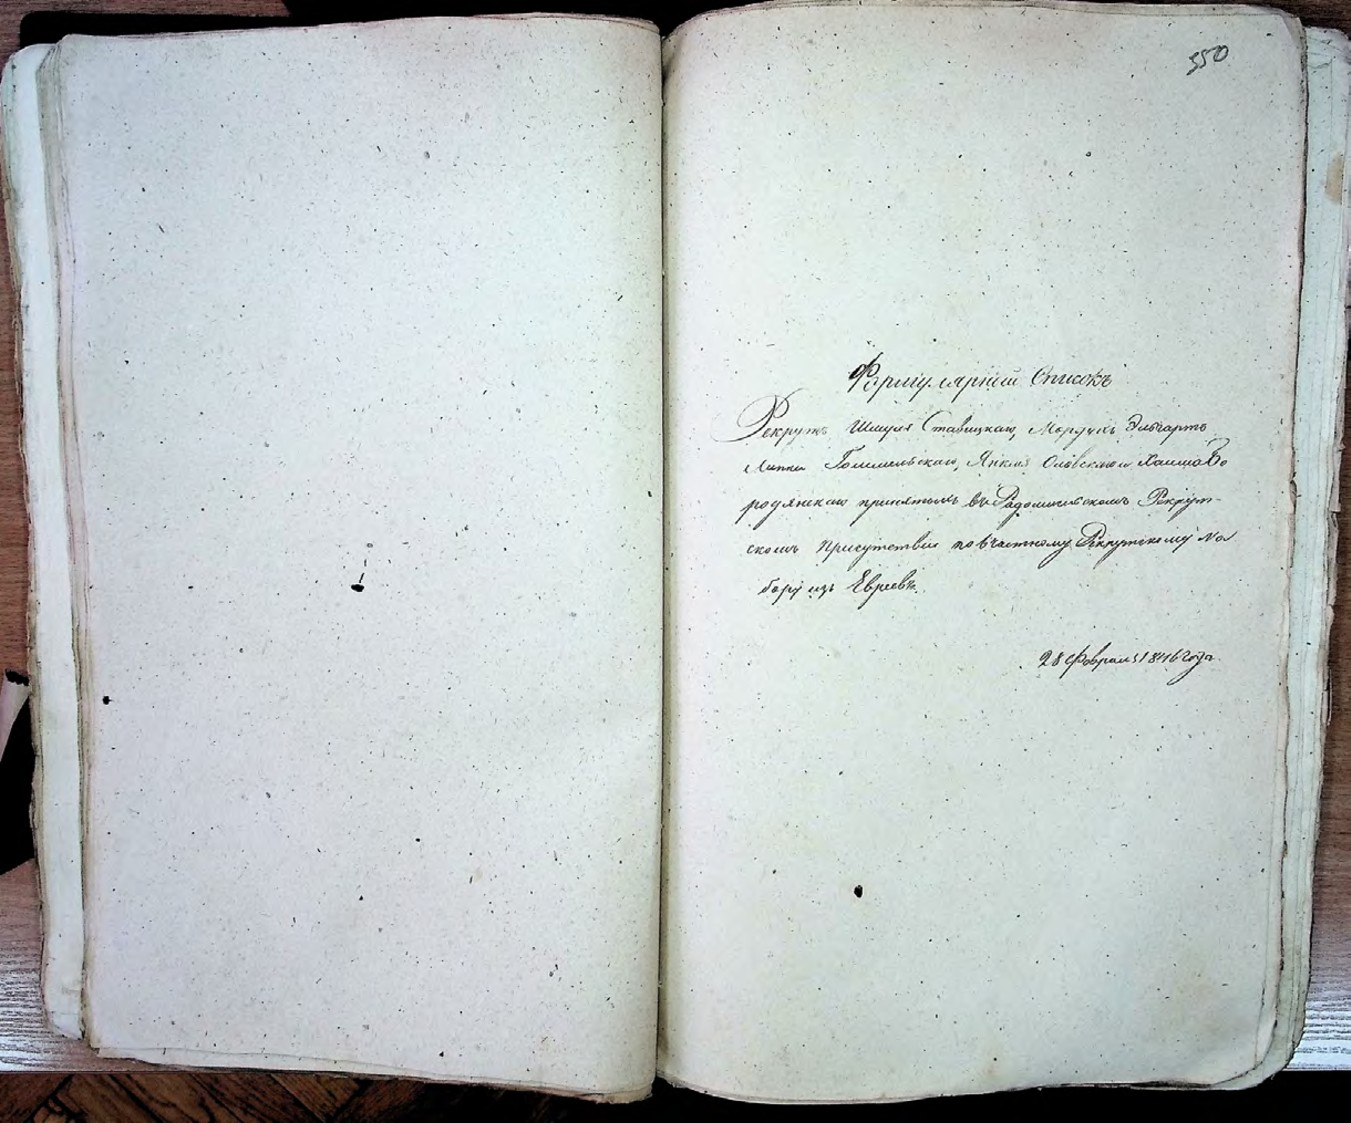 550
Формулярный Списокъ
Рекрутъ Шмуля Ставицкаго, Мордухъ Эльгартъ
Липки Гомельскаго, Янкля Словскаго и Хаима Бо
родянскаго принятымъ въ Радомысльскомъ Рекрут-
скомъ Присутствіи по частному Рекрутскому На
бору изъ Евреевъ.
28 февраля 1846 года